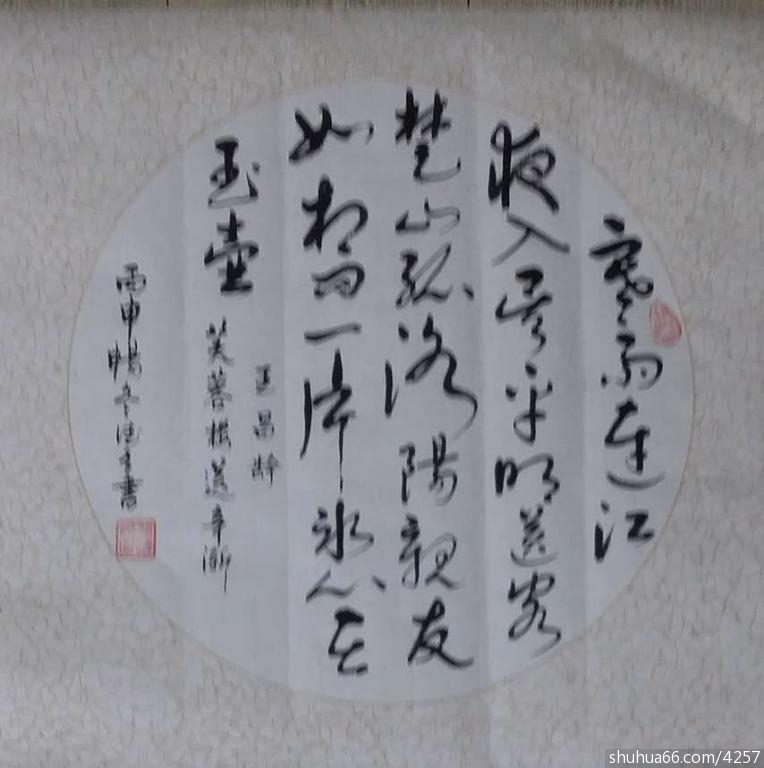 寒雨连江
夜入吴平明送客
楚山孤洛陽親友
如相问一片冰心在
玉壶
王昌龄
芙蓉楼送辛渐
丙申書
shuhua66.com/4257